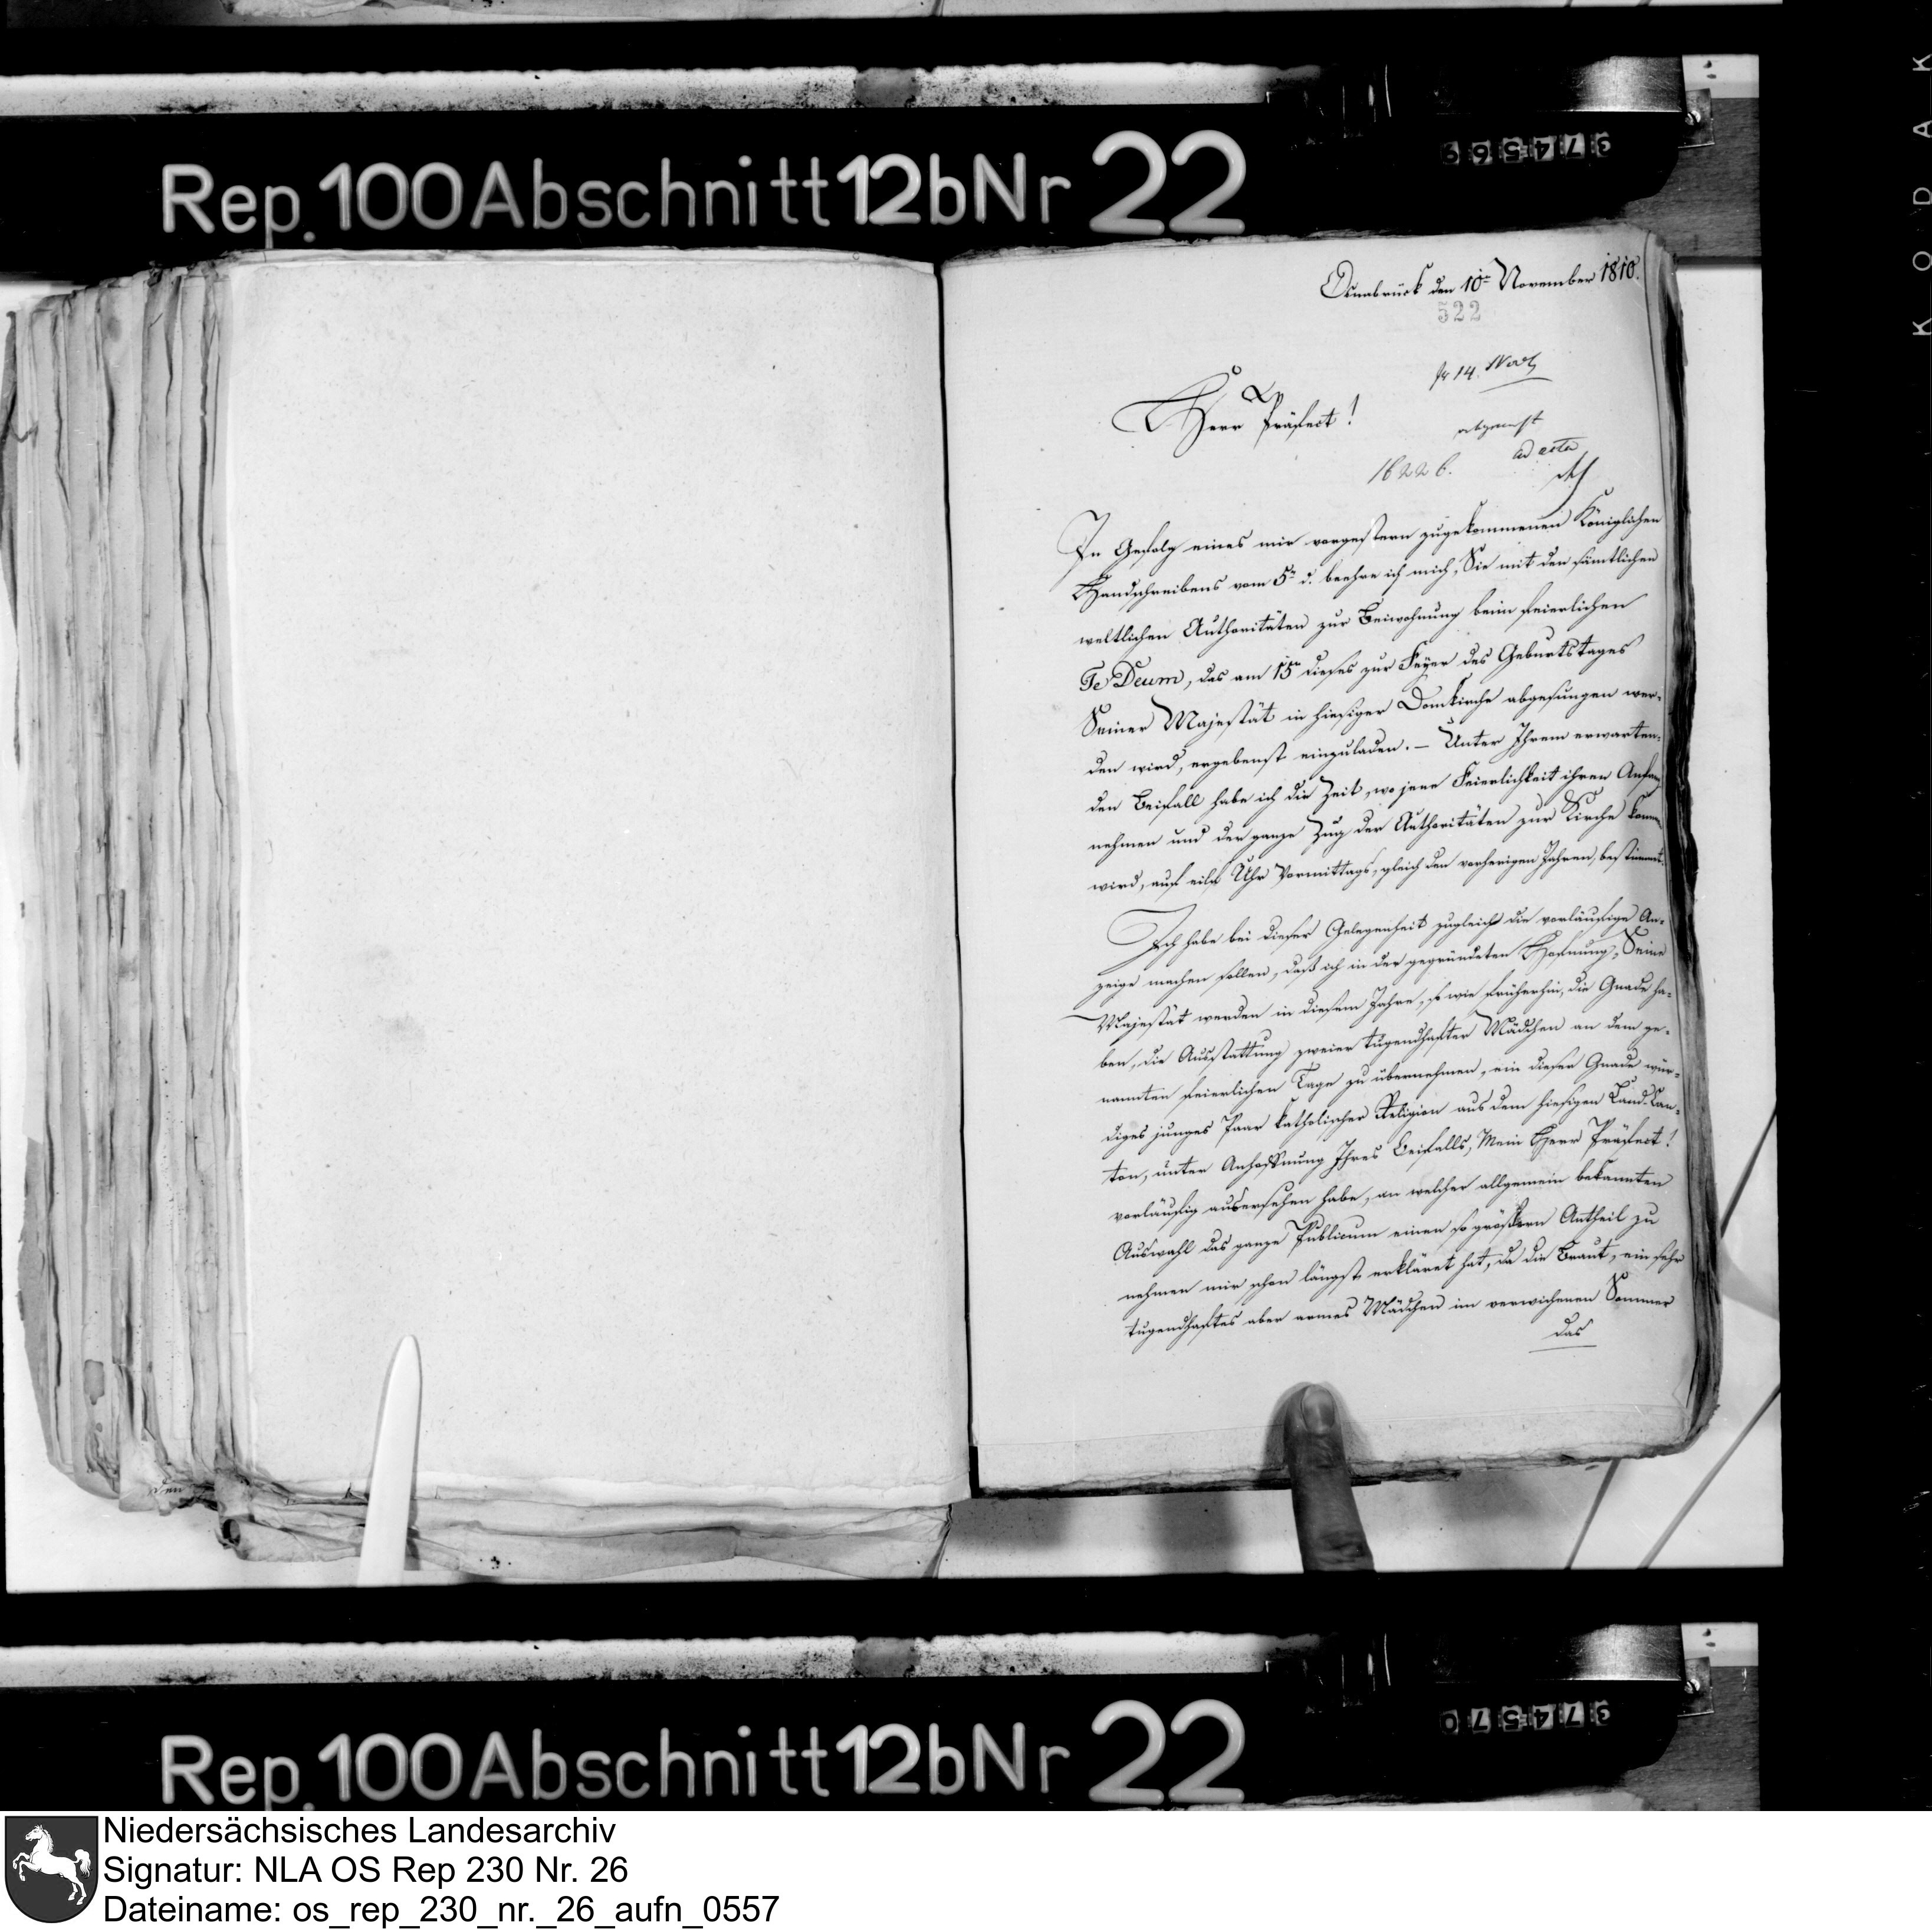 Rep. 100 Abschnitt 12b Nr 22
374569
KODAK
Osnabrück den 10n November 1810.
522
pr 14. Nov
Herr Präfect!
ad acta
1622 6.
In Gefolg eines mir vorgestern zugekommenen Königlichen
Handschreibens vom 5n d. beehre ich mich, Sie mit den sämtlichen
weltlichen Authoritäten zur Beiwohnung beim feierlichen
Te Deum, das am 15n dieses zur Feyer des Geburtstages
Seiner Majestät in hiesiger Domkirche abgesungen wer-
den wird, ergebenst einzuladen. – Unter Ihrem erwarten-
den Beifall habe ich die Zeit, wo jene Feierlichkeit ihren Anfang
nehmen und der ganze Zug der Authoritäten zur Kirche komm
wird, auf eilf Uhr Vormittags, gleich den vorherigen Jahren, bestimmt.
Ich habe bei dieser Gelegenheit zugleich die vorläufige An-
zeige machen sollen, daß ich in der gegründeten Hofnung, Seine
Majestät werden in diesem Jahre, so wie früherhin, die Gnade ha-
ben, die Ausstattung zweier tugendhafter Mädchen an dem ge-
nannten feierlichen Tage zu übernehmen, ein dieser Gnade wür-
diges junges Paar katholischer Religion aus dem hiesigen Land-Can-
ton, unter Anhoffnung Ihres Beifalls, Mein Herr Präfect!
vorläufig ausersehen habe, an welcher allgemein bekannten
Auswahl das ganze Publicum einen so größern Antheil zu
nehmen mir schon längst erkläret hat, da die Braut, ein sehr
tugendhaftes aber armes Mädchen im verwichenen Sommer
das
Rep. 100 Abschnitt 12b Nr 22
374570
Niedersächsisches Landesarchiv
Signatur: NLA OS Rep 230 Nr. 26
Dateiname: os_rep_230_nr._26_aufn_0557